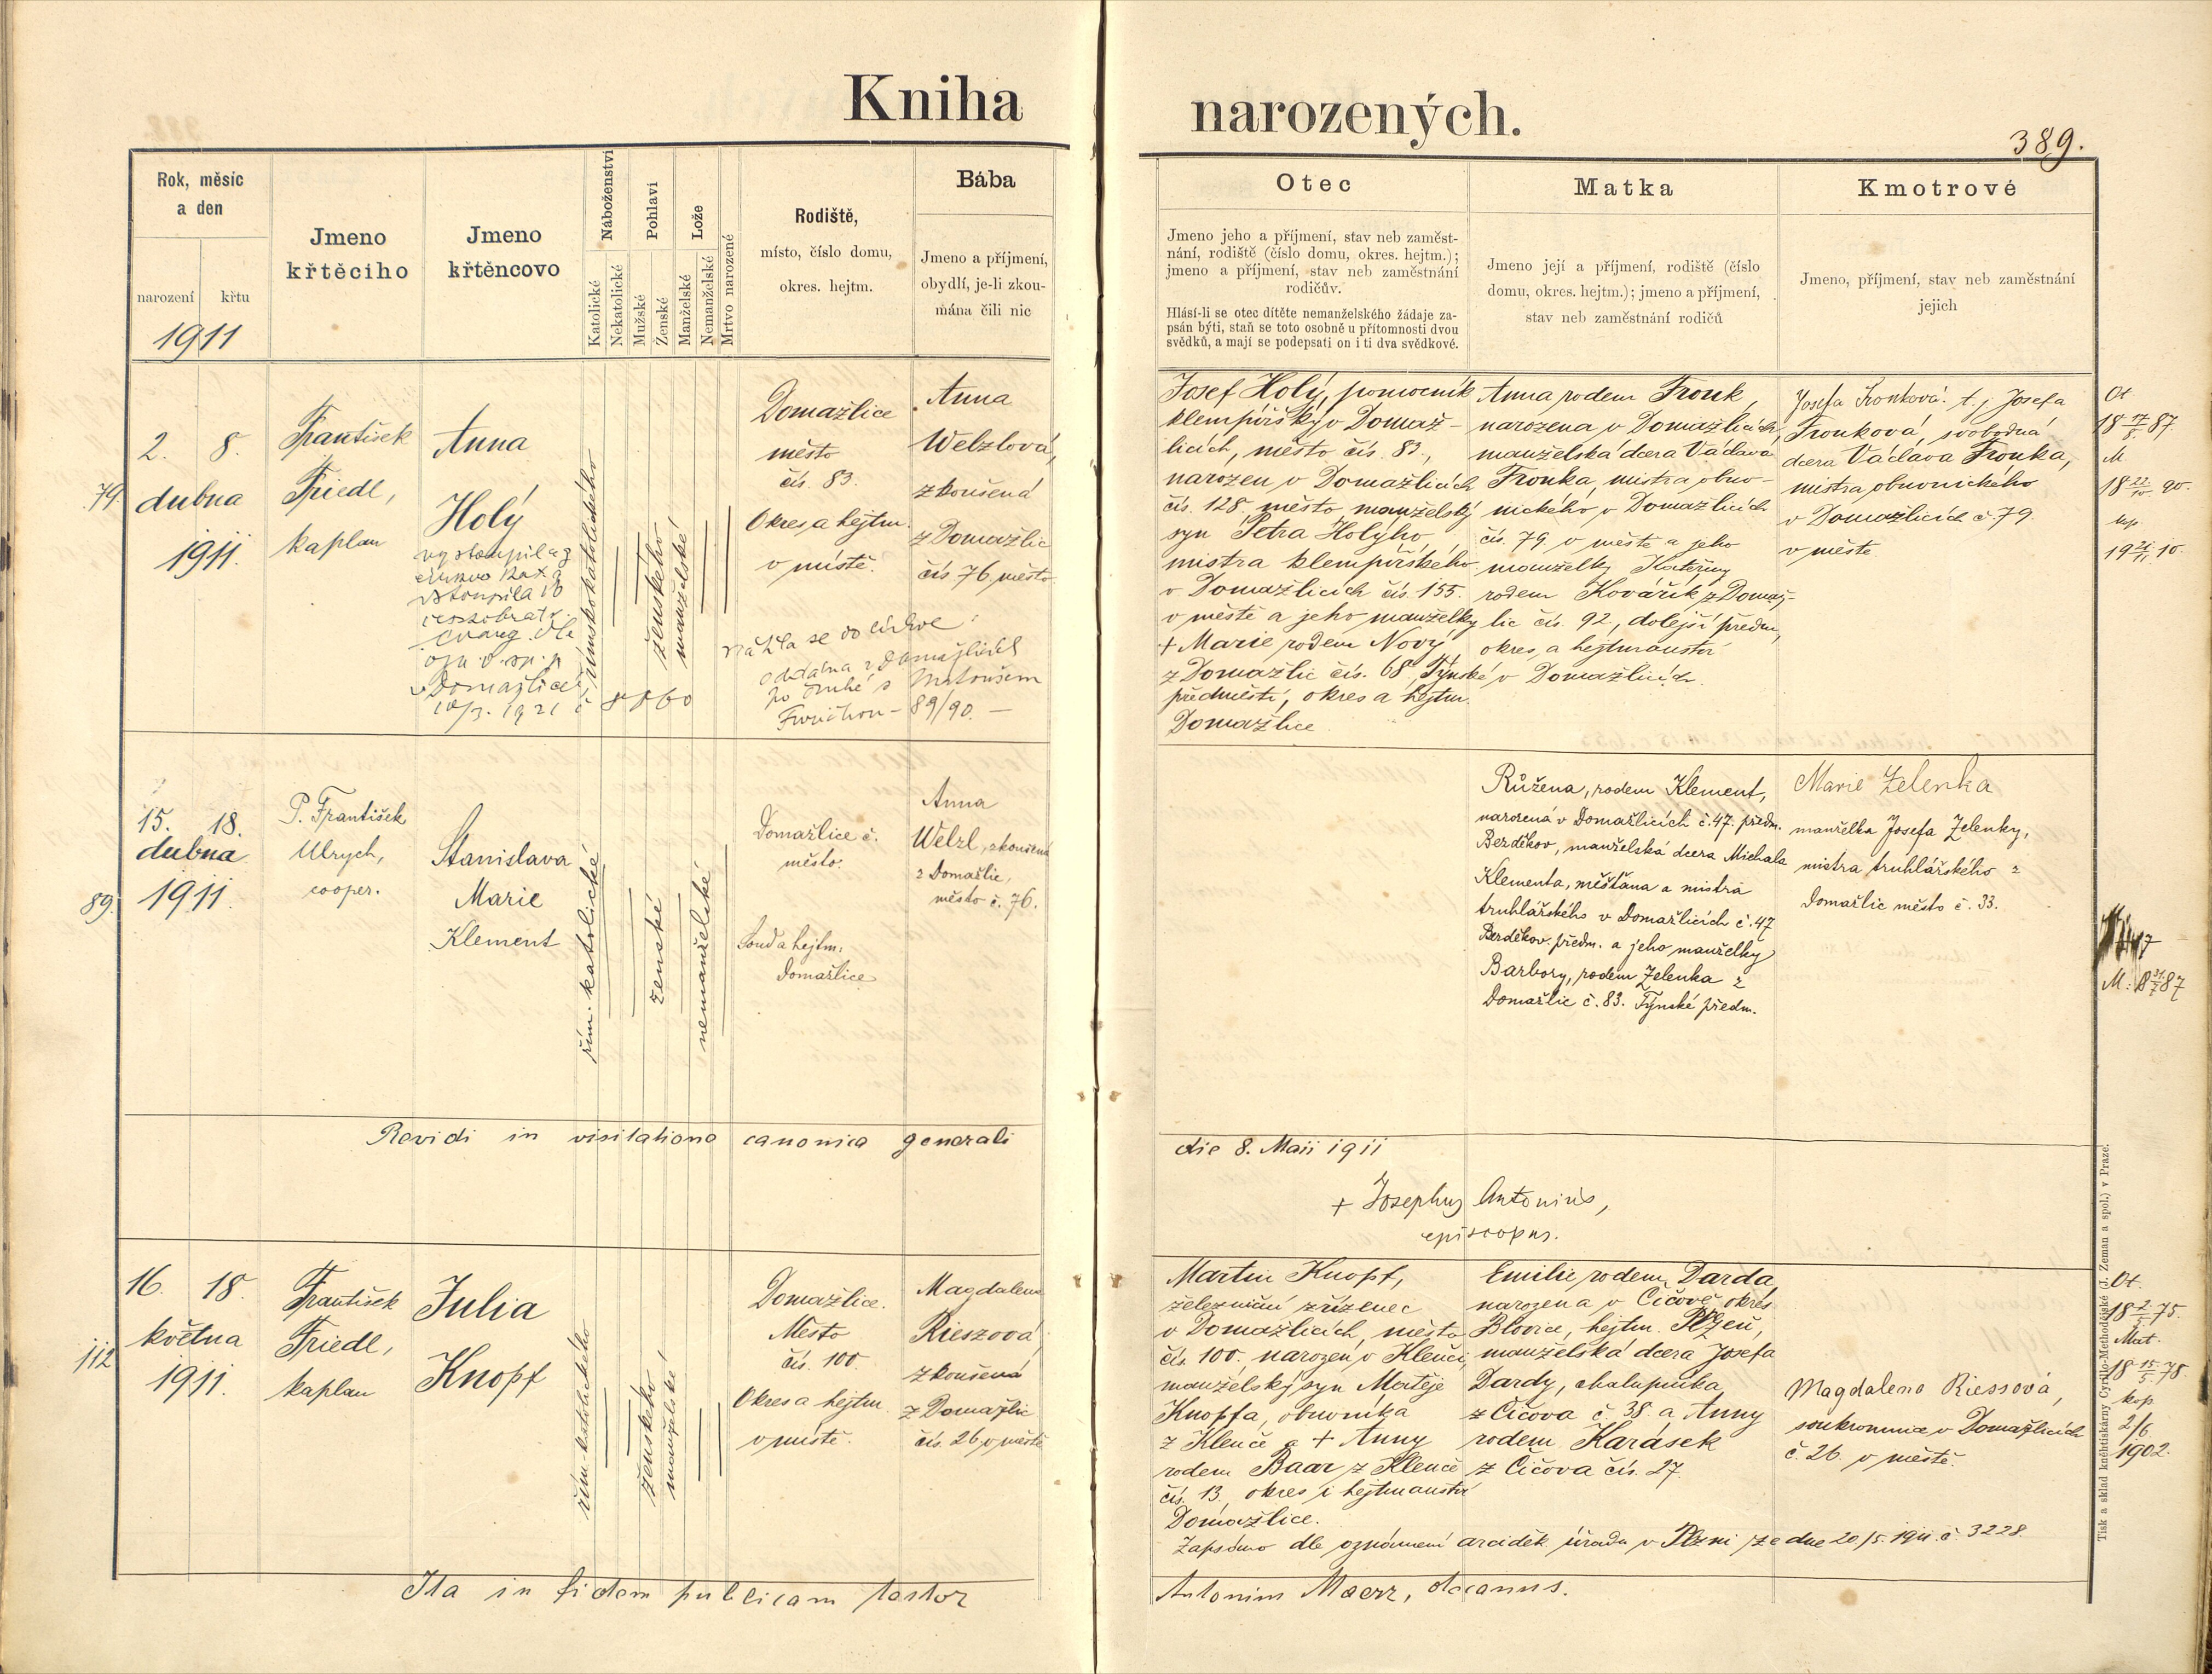 Kniha narozených.
389.
Rok, měsíc
a den
narození křtu
1911
Jmeno
křtěcího
Jmeno
křtěncovo
Náboženství
Katolické
Nekatolické
Pohlaví
Mužské
Ženské
Lože
Manželské
Nemanželské
Mrtvo narozené
Rodiště,
místo, číslo domu,
okres. hejtm.
Bába
Jmeno a příjmení,
obydlí, je-li zkou-
mána čili nic
Otec
Jmeno jeho a příjmení, stav neb zaměst-
nání, rodiště (číslo domu, okres. hejtm.);
jmeno a příjmení, stav neb zaměstnání
rodičův.
Hlásí-li se otec dítěte nemanželského žádaje za-
psán býti, staň se toto osobně u přítomnosti dvou
svědků, a mají se podepsati on i ti dva svědkové.
Matka
Jmeno její a příjmení, rodiště (číslo
domu, okres. hejtm.); jmeno a příjmení,
stav neb zaměstnání rodičů
Kmotrové
Jmeno, příjmení, stav neb zaměstnání
jejich
79.
2. 8.
dubna
1911.
František
Friedl,
kaplan
Anna
Holý
vystoupila z
církve kat. a
vstoupila do
českobratr.
evang. dle
ozn. o. sp. p.
v Domažlicích
10/3. 1921 č.
římskokatolického
ženského
manželské
Domažlice
město
čís. 83.
Okres a hejtm.
v místě.
Anna
Welzlová,
zkoušená
z Domažlic
čís. 76, město
vrátila se do církve
oddána v Domažlicích
po druhé s Matoušem
89/90. —
Josef Holý, pomocník
klempířský v Domaž-
licích, město čís. 83.,
narozen v Domažlicích
čís. 128. město, manželský
syn Petra Holýho,
mistra klempířského
v Domažlicích čís. 155.
v městě a jeho manželky
+ Marie rodem Nový
z Domažlic čís. 68. Týnské
předměstí, okres a hejtm.
Domažlice
Anna rodem Fronk,
narozena v Domažlicích,
manželská dcera Václava
Fronka, mistra obuv-
nického v Domažlicích
čís. 79 v městě a jeho
manželky Kateřiny
rodem Kovářík z Domaž-
lic čís. 92., dolejší předm.,
okres, a hejtmanství
v Domažlicích.
Josefa Fronková: t. j. Josefa
Fronková, svobodná
dcera Václava Fronka,
mistra obuvnického
v Domažlicích č. 79.
v městě
Ot
18 17/5. 87.
M.
18 22/10. 90.
kop.
19 21/11. 10.
89.
15. 18.
dubna
1911.
P. František
Ulrych,
cooper.
Stanislava
Marie
Klement
řím. katolické
ženské
nemanželské
Domažlice č.
město.
Soud a hejtm:
Domažlice
Anna
Welzl, zkoušená
z Domažlic,
město č. 76.
Růžena, rodem Klement,
narozená v Domažlicích č. 47. předm.
Bezděkov, manželská dcera Michala
Klementa, měšťana a mistra
truhlářského v Domažlicích č. 47
Bezděkov. předm. a jeho manželky
Barbory, rodem Zelenka z
Domažlic č. 83. Týnské předm.
Marie Zelenka
manželka Josefa Zelenky,
mistra truhlářského z
Domažlic město č. 33.
Revidi in visitatione canonica generali
die 8. Maii 1911
+ Josephus Antonius,
episcopus.
112
16. 18.
května
1911.
František
Friedl,
kaplan
Julia
Knopf
řím. katolického
ženského
manželské
Domažlice.
Město
čís. 100.
Okres a hejtm.
v místě.
Magdalena
Rieszová,
zkoušená
z Domažlic
čís. 26, v městě
Martin Knopf,
železniční zřízenec
v Domažlicích, město
čís. 100., narozen v Klenči,
manželský syn Matěje
Knopfa, obuvníka
z Klenče a + Anny
rodem Baar z Klenče
čís. 13., okres i hejtmanství
Domažlice.
Emilie rodem Darda,
narozena v Čičově okres
Blovice, hejtm. Plzeň,
manželská dcera Josefa
Dardy, chalupníka,
z Čičova č. 38. a Anny
rodem Karásek
z Čičova čís. 27.
Magdalena Riessová,
soukromnice v Domažlicích
č. 26. v městě.
Ot.
18 2/5. 75.
Mat.
18 15/5. 78.
kop.
2/6
1902.
Zapsáno dle oznámení arciděk. úřadu v Plzni ze dne 20./5. 1911. č. 3228.
Ita in fidem publicam pastor
Antonim Maerz, decanus.
Tisk a sklad knihtiskárny Cyrillo-Methodějské (J. Zeman a spol.) v Praze.